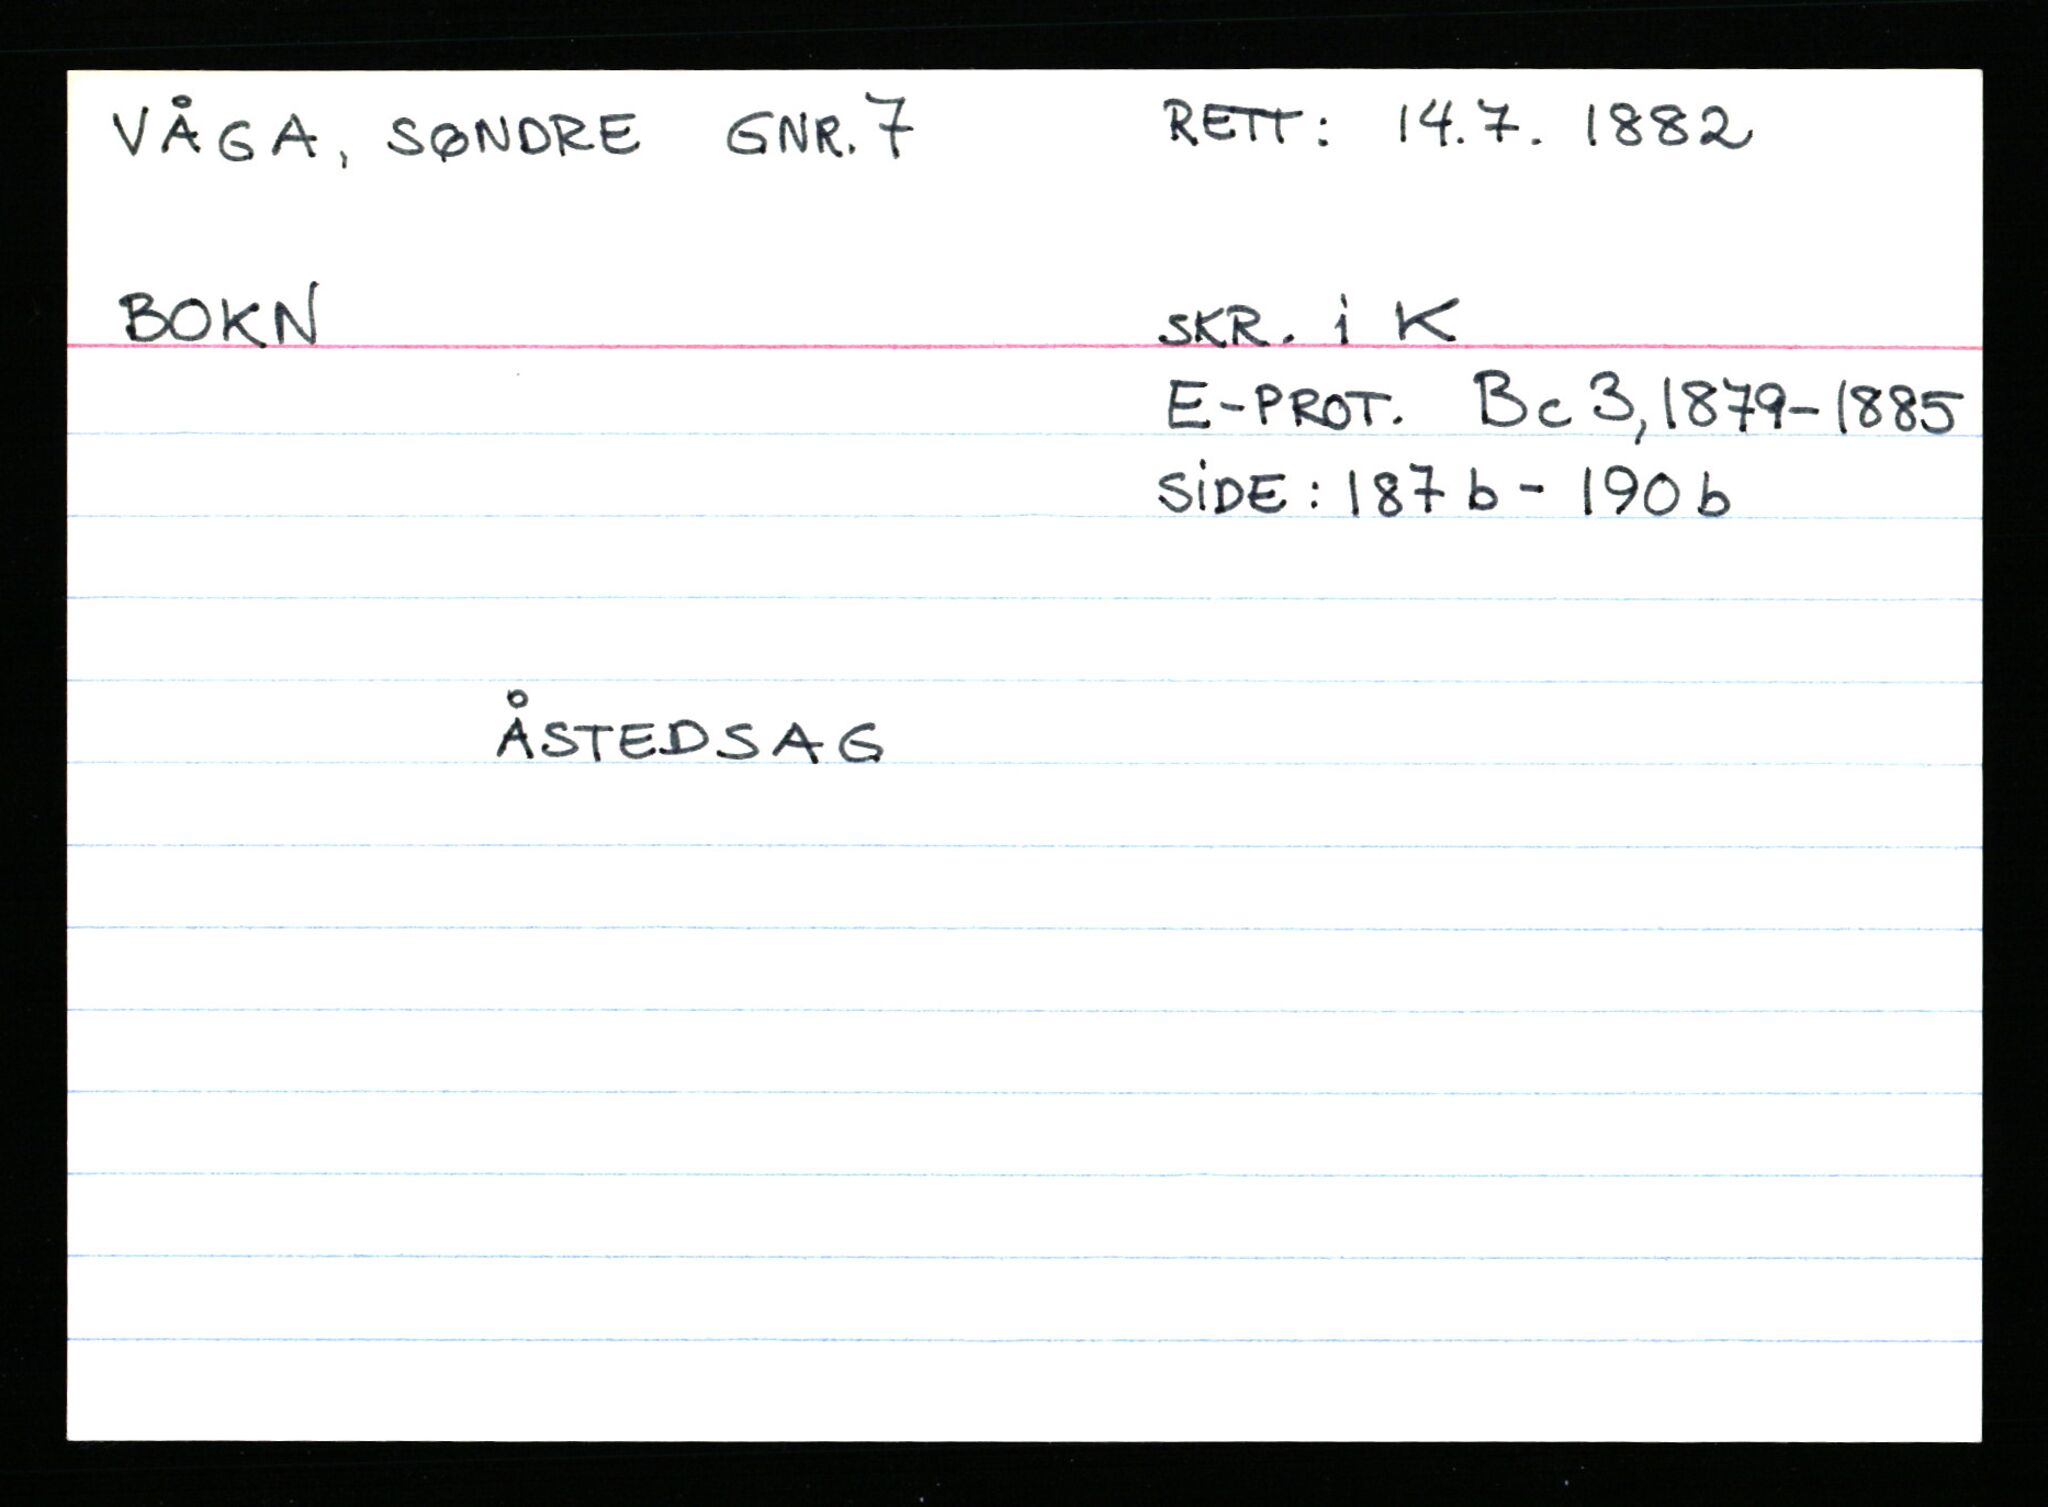 VÅGA, SØNDRE GNR. 7 RETT: 14.7. 1882
BOKN SKR. i K
E-PROT. Bc 3, 1879-1885
SiDE: 187 b - 190 b
ÅSTEDSAG